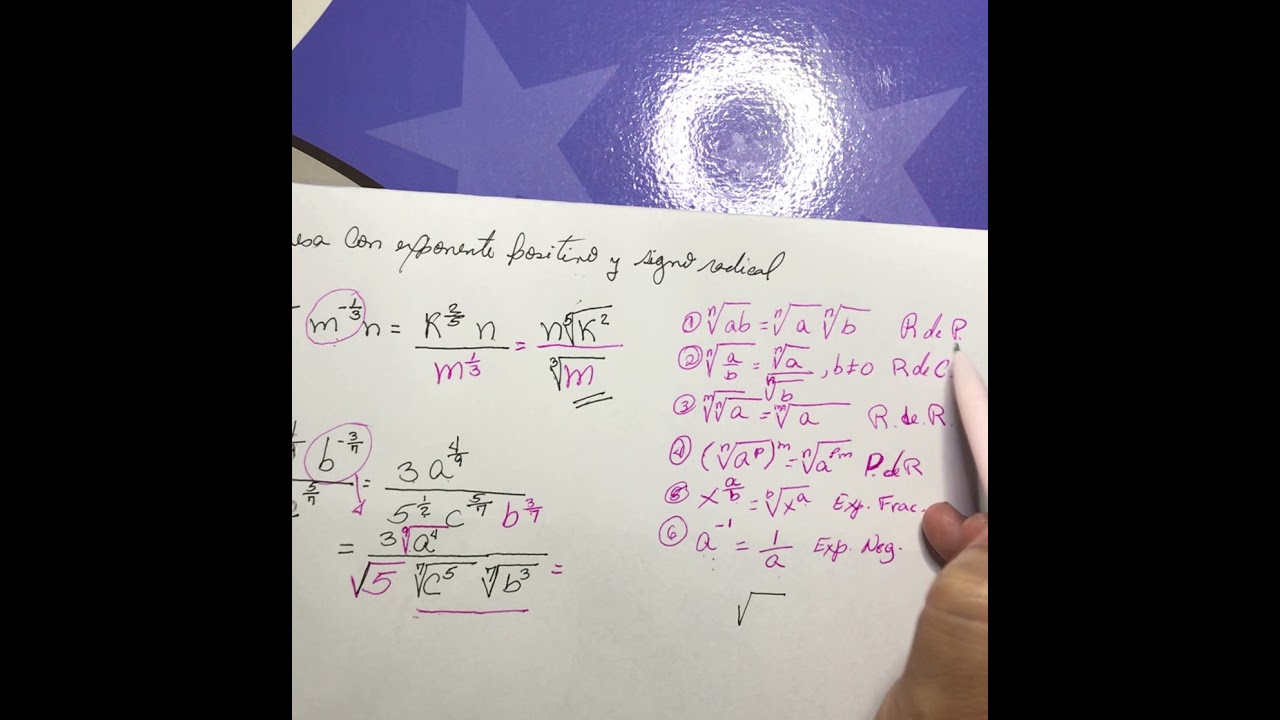 Con exponente positivo y signo radical
m^{-1/3} n = \frac{K^{2/5} n}{m^{1/3}} = \frac{n \sqrt[5]{K^2}}{\sqrt[3]{m}}
b^{-3/7} = \frac{3 a^{4/9}}{5^{1/2} c^{5/7} b^{3/7}}
= \frac{3 \sqrt[9]{a^4}}{\sqrt{5} \sqrt[7]{c^5} \sqrt[7]{b^3}} =
① \sqrt[n]{ab} = \sqrt[n]{a} \sqrt[n]{b} R de P.
② \sqrt[n]{\frac{a}{b}} = \frac{\sqrt[n]{a}}{\sqrt[n]{b}}, b≠0 R de C.
③ \sqrt[m]{\sqrt[n]{a}} = \sqrt[mn]{a} R. de. R.
④ (\sqrt[n]{a^p})^m = \sqrt[n]{a^{pm}} P. de R
⑤ x^{a/b} = \sqrt[b]{x^a} Exp. Frac.
⑥ a^{-1} = \frac{1}{a} Exp. Neg.
√